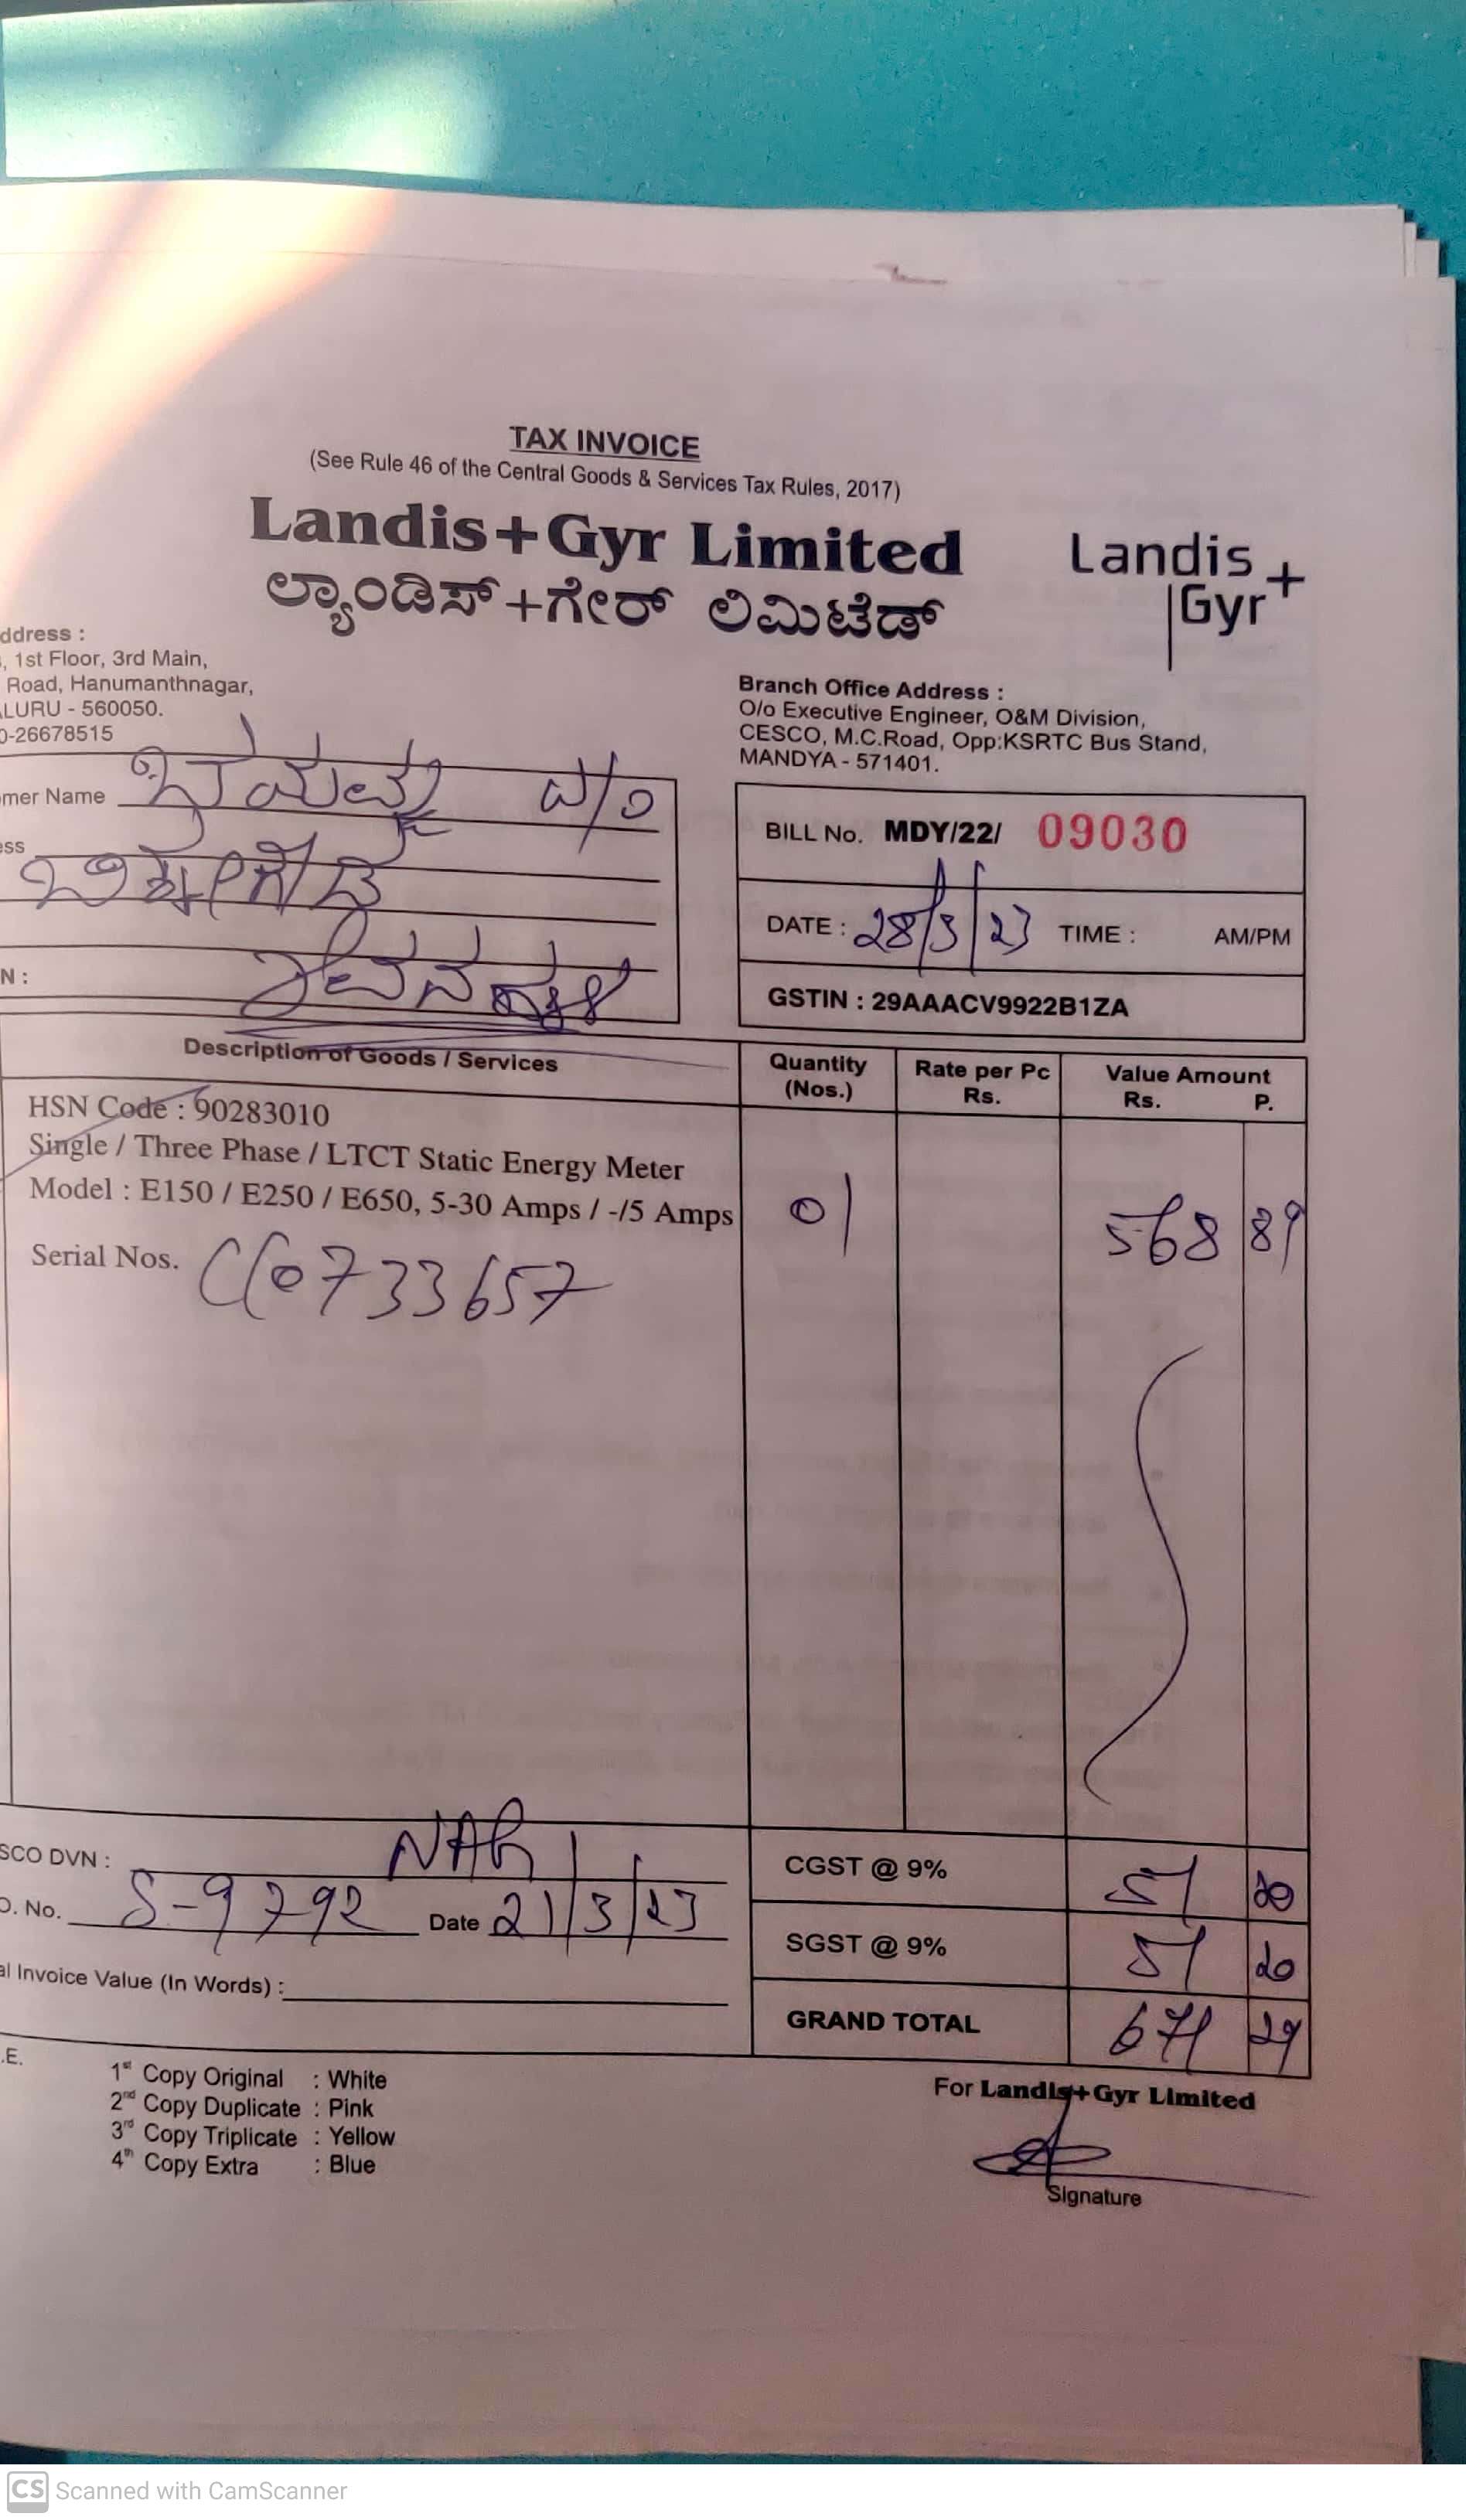 TAX INVOICE
(See Rule 46 of the Central Goods & Services Tax Rules, 2017)
Landis+Gyr Limited
ಲ್ಯಾಂಡಿಸ್+ಗೇರ್ ಲಿಮಿಟೆಡ್
Landis
Gyr+
ddress :
, 1st Floor, 3rd Main,
Road, Hanumanthnagar,
LURU - 560050.
0-26678515
Branch Office Address :
O/o Executive Engineer, O&M Division,
CESCO, M.C.Road, Opp:KSRTC Bus Stand,
MANDYA - 571401.
mer Name
ess
N :
BILL No. MDY/22/ 09030
DATE : 28/3/23 TIME : AM/PM
GSTIN : 29AAACV9922B1ZA
Description of Goods / Services
Quantity (Nos.)
Rate per Pc Rs.
Value Amount
Rs. P.
HSN Code : 90283010
Single / Three Phase / LTCT Static Energy Meter
Model : E150 / E250 / E650, 5-30 Amps / -/5 Amps
01 568 89
Serial Nos. CC0733657
SCO DVN :
O. No. S-9792 Date 21/3/23
al Invoice Value (In Words) :
CGST @ 9% 51 20
SGST @ 9% 51 20
GRAND TOTAL 671 29
.E.
1st Copy Original : White
2nd Copy Duplicate : Pink
3rd Copy Triplicate : Yellow
4th Copy Extra : Blue
For Landis+Gyr Limited
Signature
CS Scanned with CamScanner